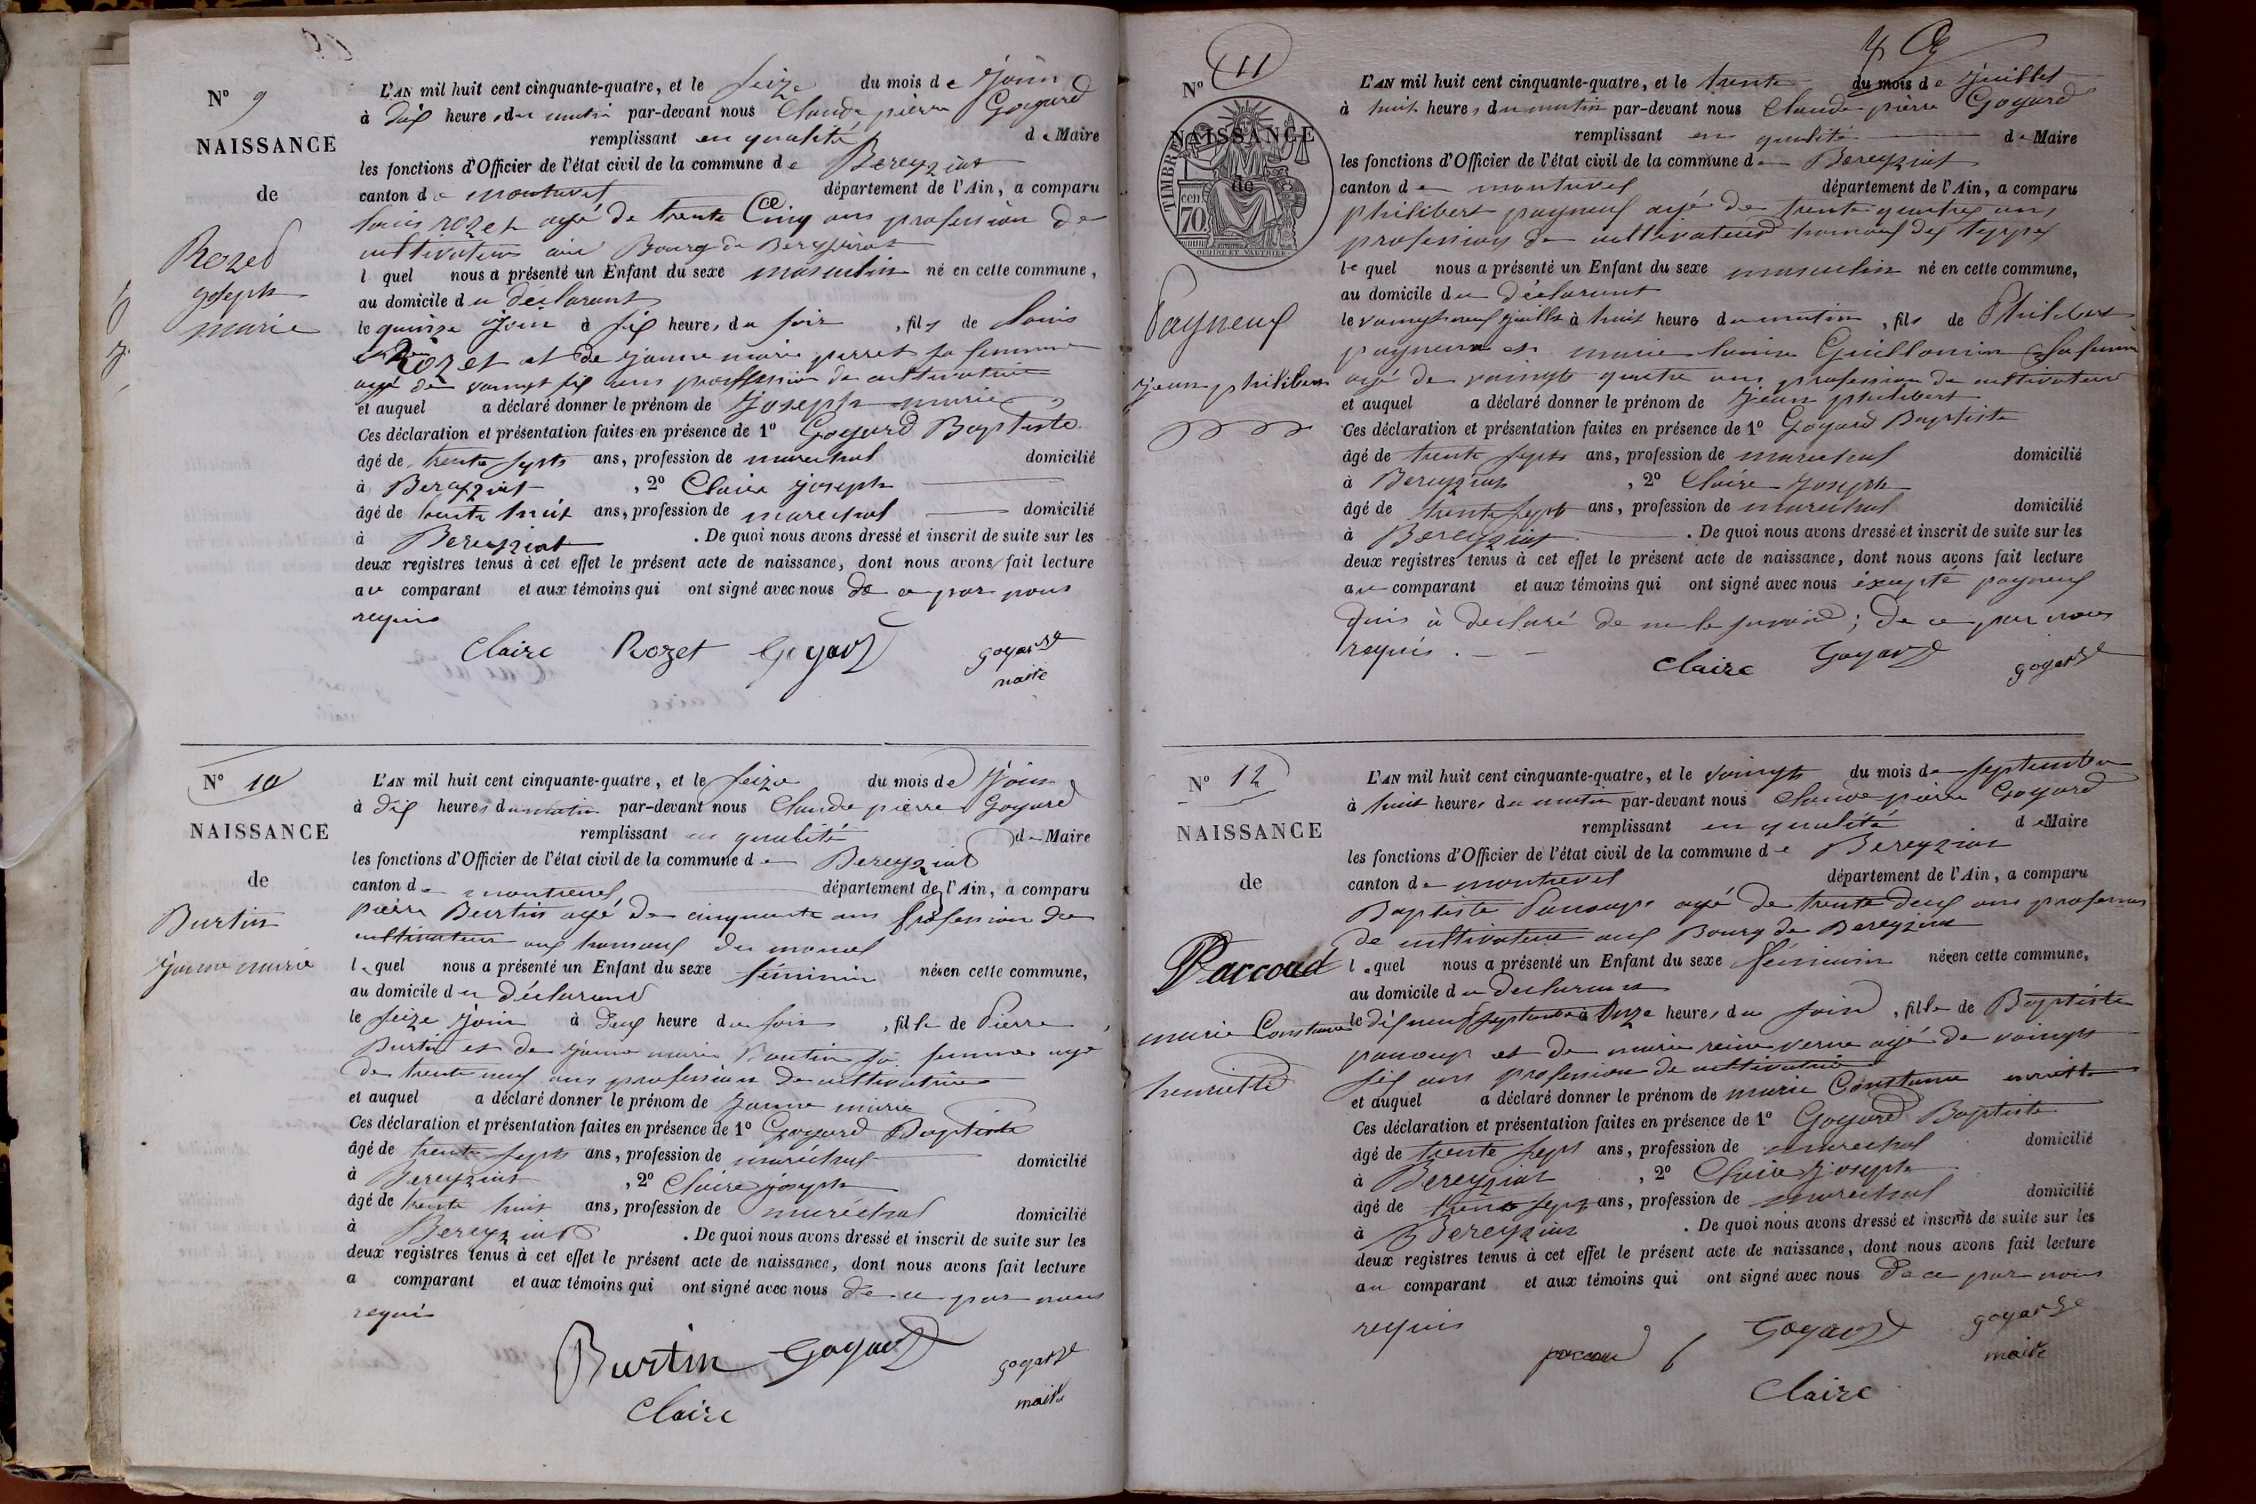 N° 9
NAISSANCE
de
Rozet
joseph
marie
L'AN mil huit cent cinquante-quatre, et le seize du mois de join
à dix heures du matin par-devant nous Claude pierre Goyard
remplissant en qualité de Maire
les fonctions d'Officier de l'état civil de la commune de Bereyziat
canton de montrevel département de l'Ain, a comparu
louis rozet agé de trente Cinq ans profession de
cultivateur au Bourg de Bereyziat
lequel nous a présenté un Enfant du sexe masculin né en cette commune,
au domicile du déclarant
le quinze join à six heures du soir, fils de louis
Rozet et de jeanne marie perret sa femme
agé de vaingt six ans proffession de cultivatrice
et auquel a déclaré donner le prénom de joseph marie
Ces déclaration et présentation faites en présence de 1° Goyard Baptiste
âgé de trente septs ans, profession de marechal domicilié
à Bereyziat, 2° Claire joseph
âgé de trente huit ans, profession de marechal domicilié
à Bereyziat. De quoi nous avons dressé et inscrit de suite sur les
deux registres tenus à cet effet le présent acte de naissance, dont nous avons fait lecture
au comparant et aux témoins qui ont signé avec nous de ce par nous
requis
Claire Rozet Goyard Goyard
maire
N° 10
NAISSANCE
de
Burtin
jeanne marie
L'AN mil huit cent cinquante-quatre, et le seize du mois de join
à dix heures du matin par-devant nous Claude pierre Goyard
remplissant en qualité de Maire
les fonctions d'Officier de l'état civil de la commune de Bereyziat
canton de montrevel département de l'Ain, a comparu
pierre Burtin agé de cinquante ans profession de
cultivateur aux hamaux du
lequel nous a présenté un Enfant du sexe féminin née en cette commune,
au domicile du déclarant
le seize join à deux heure du soir, fille de Pierre
Burtin et de jeanne marie sa femme agé
de trente neuf ans profession de cultivatrice
et auquel a déclaré donner le prénom de jeanne marie
Ces déclaration et présentation faites en présence de 1° Goyard Baptiste
âgé de trente septs ans, profession de maréchal domicilié
à Bereyziat, 2° Claire joseph
âgé de trente huit ans, profession de maréchal domicilié
à Bereyziat. De quoi nous avons dressé et inscrit de suite sur les
deux registres tenus à cet effet le présent acte de naissance, dont nous avons fait lecture
a comparant et aux témoins qui ont signé avec nous de ce par nous
requis
Burtin Goyard Goyard
Claire maire
N° 11
NAISSANCE
de
TIMBRE
70 cen
Payneuf
jean philibert
L'AN mil huit cent cinquante-quatre, et le trente du mois de juillet
à huit heures du matin par-devant nous Claude pierre Goyard
remplissant en qualité de Maire
les fonctions d'Officier de l'état civil de la commune de Bereyziat
canton de montrevel département de l'Ain, a comparu
philibert payneuf agé de trente quatre ans
profession de cultivateur hamaux des
lequel nous a présenté un Enfant du sexe masculin né en cette commune,
au domicile du déclarant
le vaingt neuf juillet à huit heure du matin, fils de Philibert
payneuf et marie louise Guillomin sa femme
agé de vaingts quatre ans profession de cultivateur
et auquel a déclaré donner le prénom de jean philibert
Ces déclaration et présentation faites en présence de 1° Goyard Baptiste
âgé de trente septs ans, profession de marechal domicilié
à Bereyziat, 2° Claire joseph
âgé de trente septs ans, profession de marechal domicilié
à Bereyziat. De quoi nous avons dressé et inscrit de suite sur les
deux registres tenus à cet effet le présent acte de naissance, dont nous avons fait lecture
au comparant et aux témoins qui ont signé avec nous éxcepté payneuf
quis à declaré de ne le savoir; De ce par nous
requis.
Claire Goyard Goyard
N° 12
NAISSANCE
de
Paccoud
marie Constance
henriette
L'AN mil huit cent cinquante-quatre, et le vaingts du mois de septembre
à huit heures du matin par-devant nous Claude pierre Goyard
remplissant en qualité de Maire
les fonctions d'Officier de l'état civil de la commune de Bereyziat
canton de montrevel département de l'Ain, a comparu
Baptiste agé de trente deux ans profession
de cultivateur aux Bourg de Bereyziat
lequel nous a présenté un Enfant du sexe féminin née en cette commune,
au domicile du declarant
le dix neuf septembre à Onze heures du soir, fille de Baptiste
et de marie reine verne agé de vaingts
six ans profession de cultivatrice
et auquel a déclaré donner le prénom de marie Constance
Ces déclaration et présentation faites en présence de 1° Goyard Baptiste
âgé de trente sept ans, profession de marechal domicilié
à Bereyziat, 2° Claire joseph
âgé de trente sept ans, profession de marechal domicilié
à Bereyziat. De quoi nous avons dressé et inscrit de suite sur les
deux registres tenus à cet effet le présent acte de naissance, dont nous avons fait lecture
au comparant et aux témoins qui ont signé avec nous De ce par nous
requis
paccoud Goyard Goyard
maire
Claire